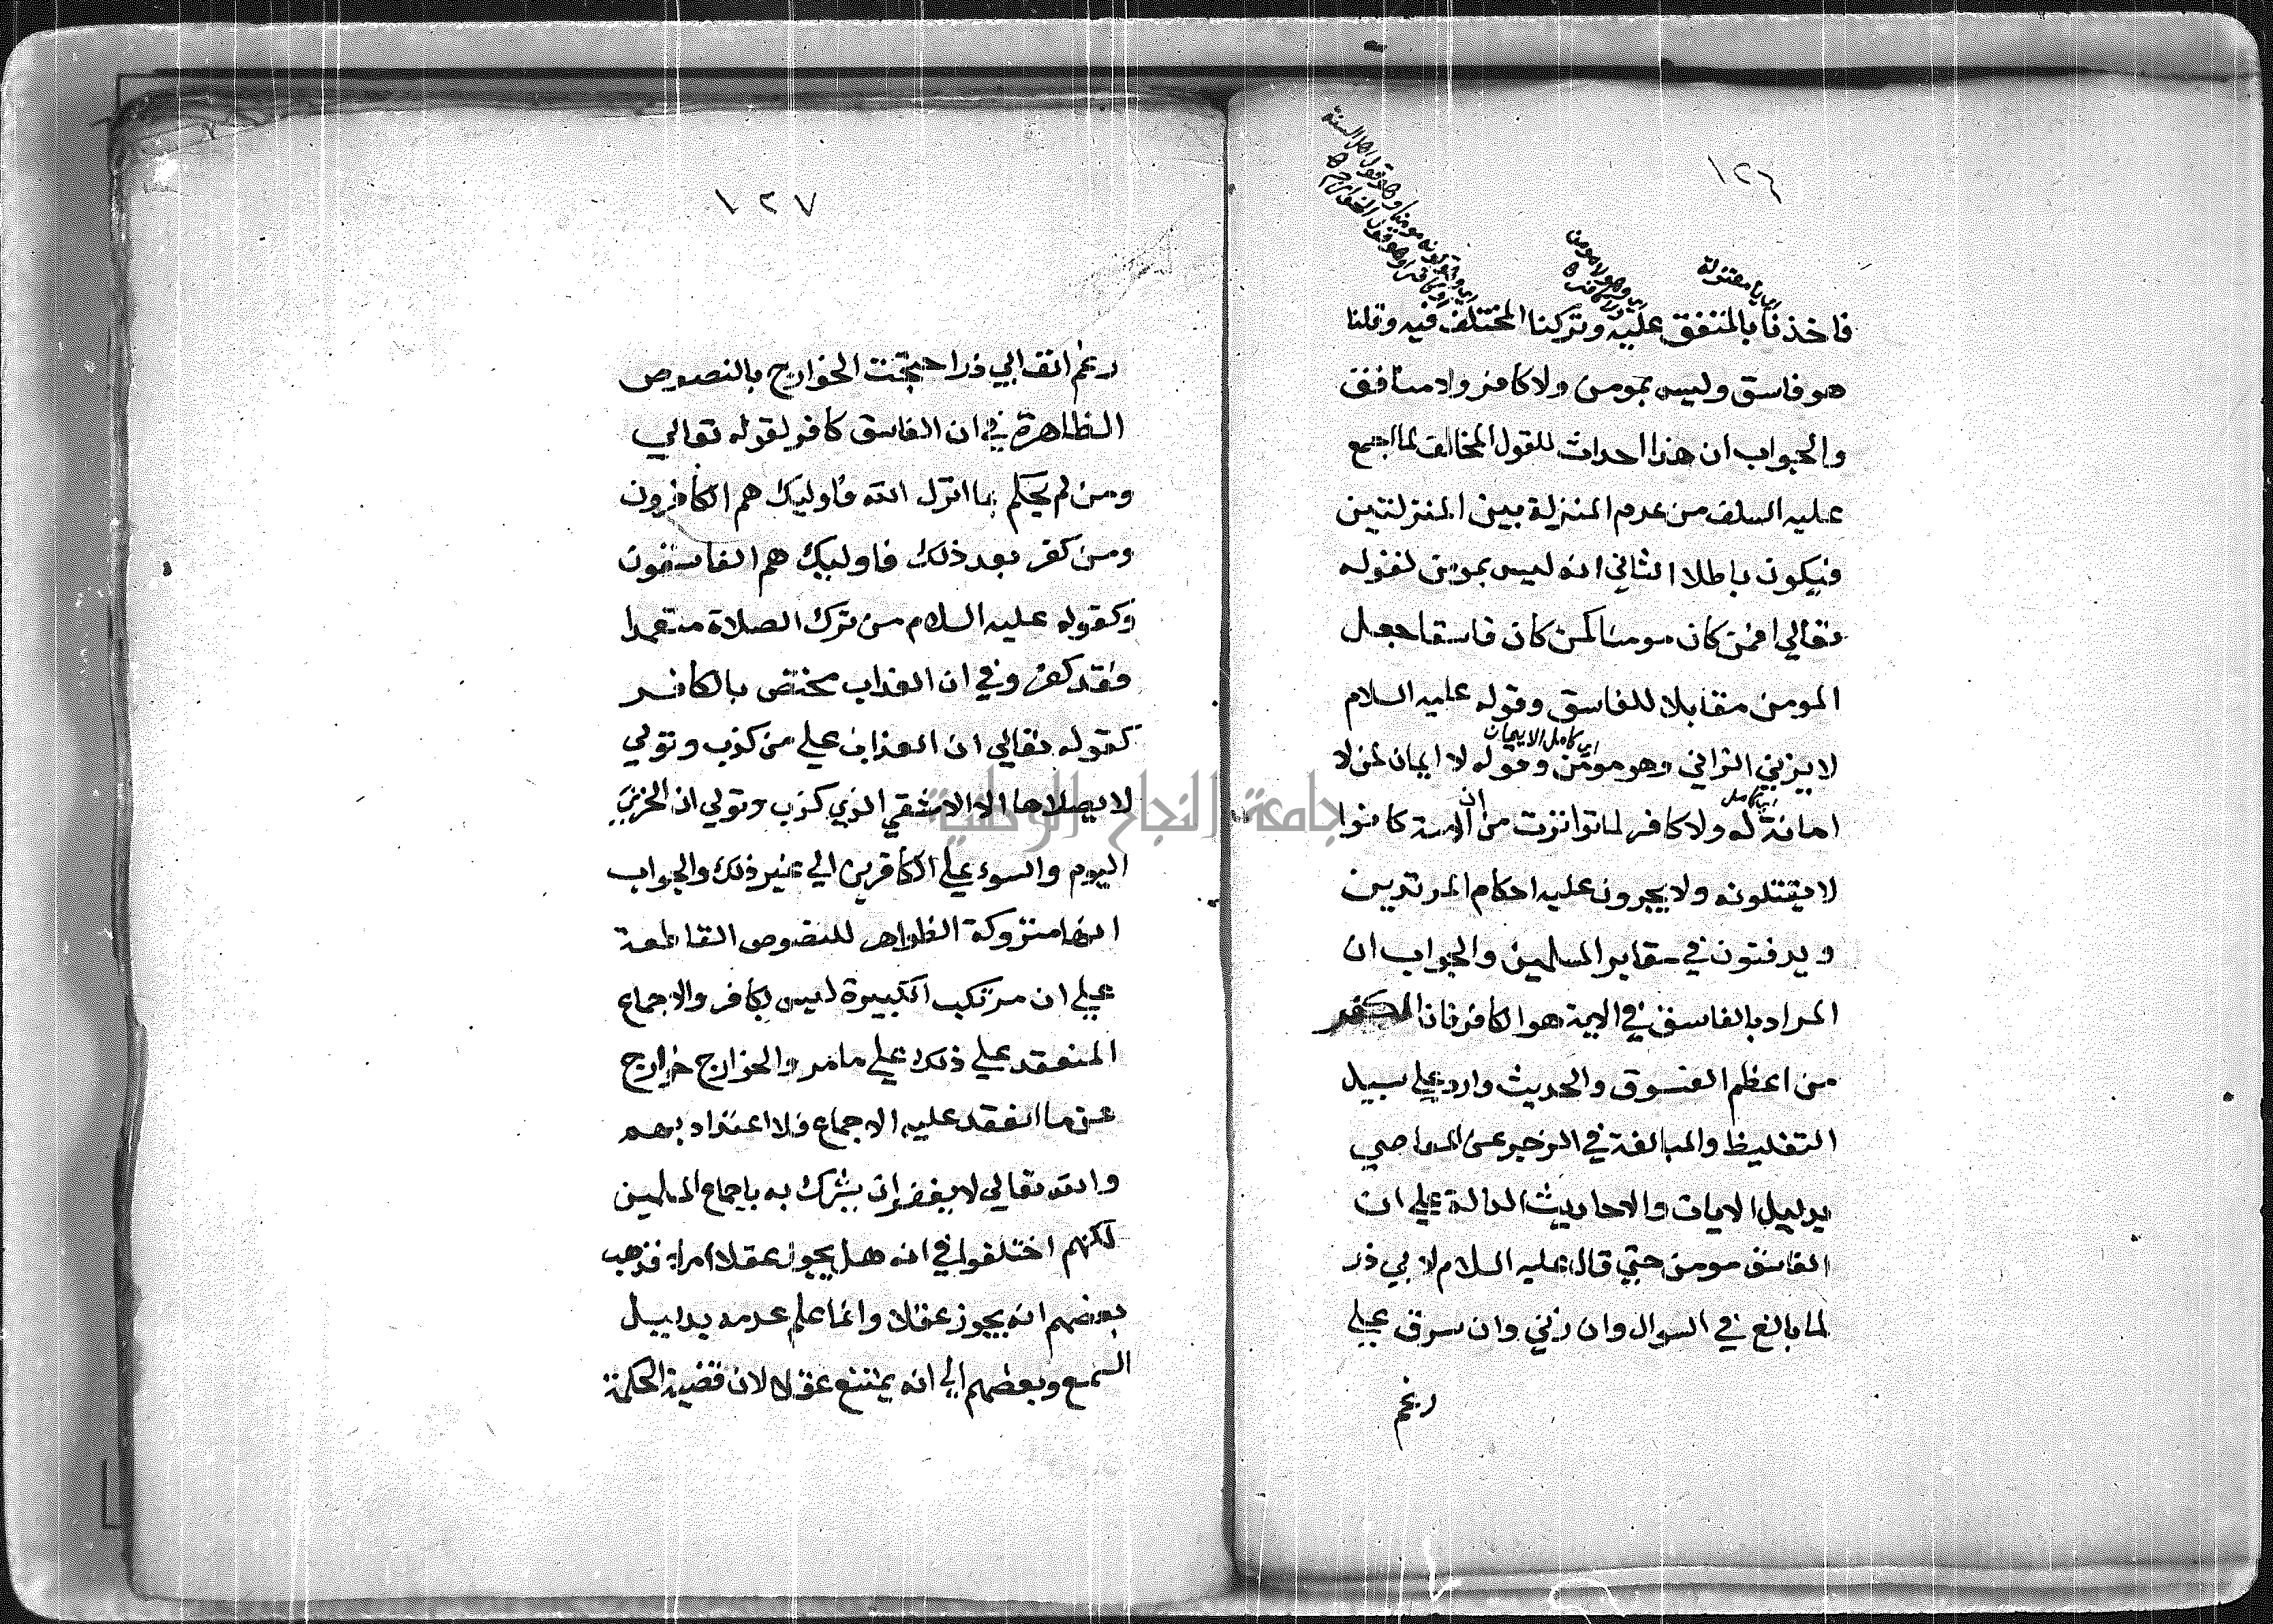 ١٢٦
اي يا معتزلة
اي وهو لا مومن
ولا كافر
فاخذنا بالمتفق عليه وتركنا المختلف فيه وقلنا
هو فاسق وليس بمومن ولا كافر ولا منافق
والجواب ان هذا احداث للقول المخالف لما اجمع
عليه السلف من عدم المنزلة بين المنزلتين
فيكون باطلا الثاني انه ليس بمومن لقوله
تعالي افمن كان مومنا كمن كان فاسقا جعل
المومن مقابلا للفاسق وقوله عليه السلام
اي كامل الايمان
لا يزني الزاني وهو مومن وقوله لا ايمان لمن لا
اي كامل
امانة له ولا كافر لما تواترت من ان الامة كانوا
لا يقتلونه ولا يجرون عليه احكام المرتدين
ويدفنون في مقابر المسلمين والجواب ان
المراد بالفاسق في الاية هو الكافر فان الكفر
من اعظم الفسوق والحديث وارد علي سبيل
التغليظ والمبالغة في الزجر عن المعاصي
بدليل الايات والاحاديث الدالة علي ان
الفاسق مومن حتي قال عليه السلام لابي ذر
لما بالغ في السوال وان زني وان سرق علي
رغم
١٢٧
رغم انف ابي ذر احتجت الخوارج بالنصوص
الظاهرة في ان الفاسق كافر لقوله تعالي
ومن لم يحكم بما انزل الله فاوليك هم الكافرون
ومن كفر بعد ذلك فاوليك هم الفاسقون
وكقوله عليه السلام من ترك الصلاة متعمدا
فقد كفر وفي ان العذاب مختص بالكافر
كقوله تعالي ان العذاب علي من كذب وتولي
لا يصلاها الا الاشقي الذي كذب وتولي ان الخزي
اليوم والسوء علي الكافرين الي غير ذلك والجواب
انها متروكة الظواهر للنصوص القاطعة
علي ان مرتكب الكبيرة ليس بكافر والاجماع
المنعقد علي ذلك علي ما مر والخوارج خوارج
عن ما انعقد عليه الاجماع فلا اعتداد بهم
والله تعالي لا يغفر ان يشرك به باجماع المسلمين
لكنهم اختلفوا في انه هل يجوز عقلا ام لا فذهب
بعضهم انه يجوز عقلا وانما علم عدمه بدليل
السمع وبعضهم الي انه يمتنع عقلا لان قضية الحكمة
جامعة النجاح الوطنية